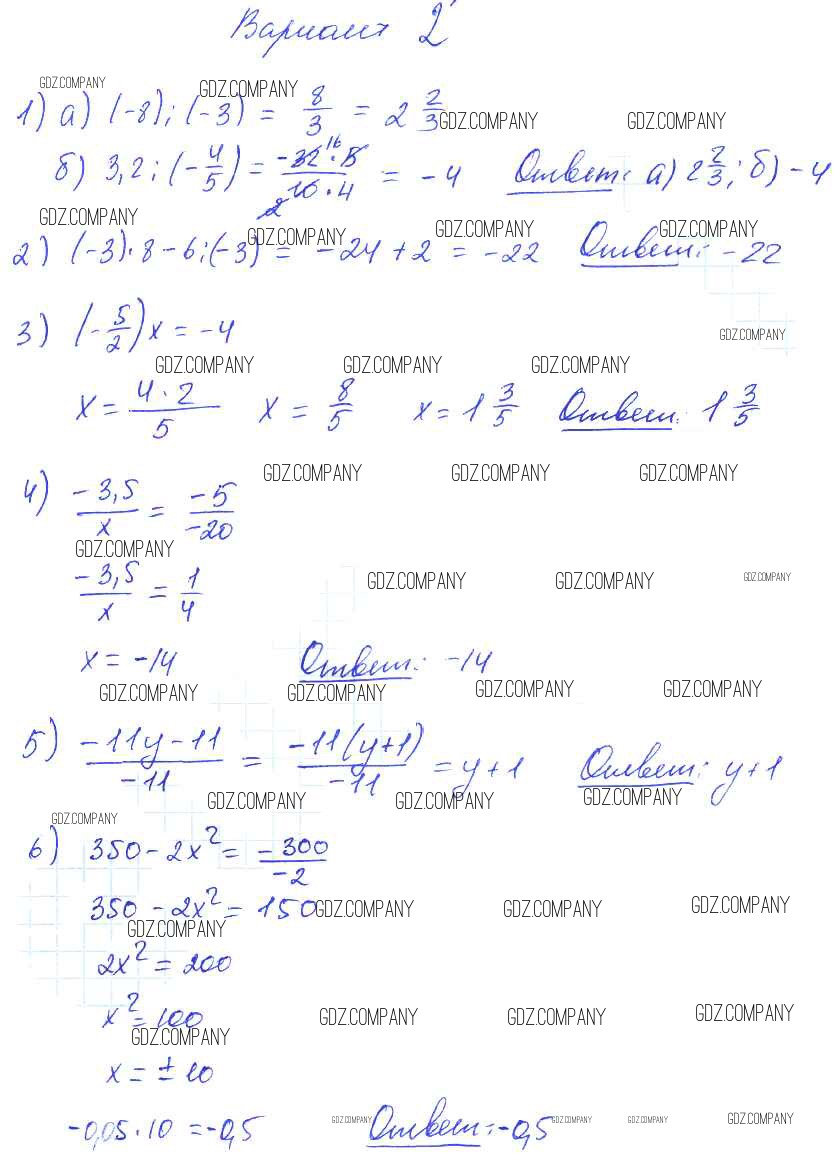 Вариант 2
GDZ.COMPANY GDZ.COMPANY GDZ.COMPANY GDZ.COMPANY
1) а) (-8):(-3) = 8/3 = 2 2/3
б) 3,2:(-4/5) = -32 16 · 5/10 2 · 4 = -4 Ответ: а) 2 2/3; б) -4
GDZ.COMPANY GDZ.COMPANY GDZ.COMPANY GDZ.COMPANY
2) (-3)·8-6:(-3) = -24+2 = -22 Ответ: -22
3) (-5/2)x = -4
GDZ.COMPANY
GDZ.COMPANY GDZ.COMPANY GDZ.COMPANY
x = 4·2/5 x = 8/5 x = 1 3/5 Ответ: 1 3/5
GDZ.COMPANY GDZ.COMPANY GDZ.COMPANY
4) -3,5/x = -5/-20
GDZ.COMPANY
-3,5/x = 1/4
GDZ.COMPANY GDZ.COMPANY GDZ.COMPANY
x = -14 Ответ: -14
GDZ.COMPANY GDZ.COMPANY GDZ.COMPANY GDZ.COMPANY
5) -11y-11/-11 = -11(y+1)/-11 = y+1 Ответ: y+1
GDZ.COMPANY GDZ.COMPANY GDZ.COMPANY
GDZ.COMPANY
6) 350-2x² = -300/-2
350-2x² = 150
GDZ.COMPANY GDZ.COMPANY GDZ.COMPANY
GDZ.COMPANY
2x² = 200
x² = 100
GDZ.COMPANY GDZ.COMPANY GDZ.COMPANY
GDZ.COMPANY
x = ±10
-0,05·10 = -0,5 Ответ: -0,5
GDZ.COMPANY GDZ.COMPANY GDZ.COMPANY GDZ.COMPANY